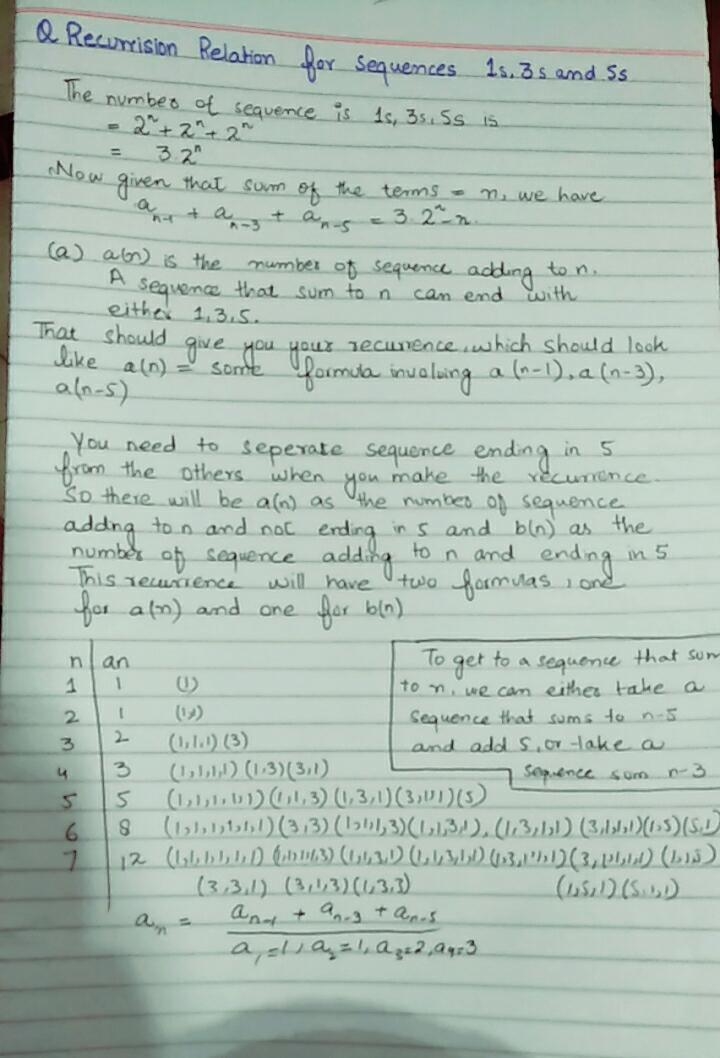 Q Recurrision Relation for sequences 1s, 3s and 5s
The number of sequence is 1s, 3s, 5s is
= 2ⁿ + 2ⁿ + 2ⁿ
= 3.2ⁿ
Now given that sum of the terms = n, we have
a_{n-1} + a_{n-3} + a_{n-5} = 3.2ⁿ-n.
(a) a(n) is the number of sequence adding to n.
A sequence that sum to n can end with
either 1,3,5.
That should give you your recurrence, which should look
like a(n) = some formula involving a(n-1), a(n-3),
a(n-5)
You need to seperate sequence ending in 5
from the others when you make the recurrence.
So there will be a(n) as the number of sequence
adding to n and not ending in 5 and b(n) as the
number of sequence adding to n and ending in 5
This recurrence will have two formulas, one
for a(n) and one for b(n)
To get to a sequence that sum
to n, we can either take a
sequence that sums to n-5
and add 5, or take a
sequence sum n-3
n an
1 1 (1)
2 1 (1,1)
3 2 (1,1,1) (3)
4 3 (1,1,1,1) (1,3) (3,1)
5 5 (1,1,1,1,1) (1,1,3) (1,3,1) (3,1,1) (5)
6 8 (1,1,1,1,1,1) (3,3) (1,1,1,3) (1,1,3,1), (1,3,1,1) (3,1,1,1) (1,5) (5,1)
7 12 (1,1,1,1,1,1,1) (1,1,1,1,3) (1,1,1,3,1) (1,1,3,1,1) (1,3,1,1,1) (3,1,1,1,1) (1,1,5)
(3,3,1) (3,1,3) (1,3,3) (1,5,1) (5,1,1)
a_n = a_{n-1} + a_{n-3} + a_{n-5}
a₁=1, a₂=1, a₃=2, a₄=3